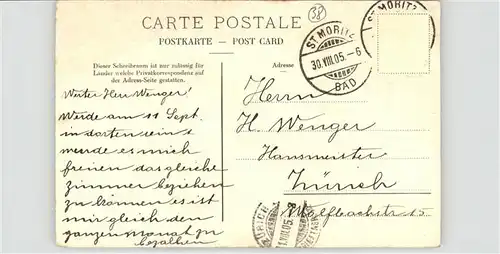 CARTE POSTALE
POSTKARTE – POST CARD
38
Dieser Schreibraum ist nur zulässig für
Länder welche Privatkorrespondenz auf
der Adress-Seite gestatten.
Adresse
ST. MORITZ
30.VIII.05.–6
BAD
ST. MORITZ
Werter Herr Wenger!
Werde am 11 Sept.
in dorten
würde es mich
freuen das gleiche
Zimmer beziehen
zu können es ist
mir gleich den
ganzen Monat zu
bezahlen
Herrn
H. Wenger
Hausmeister
Zürich
Wolfbachstr. 15.
ZÜRICH
VIII.05.–8
BRIEFTRÄGER